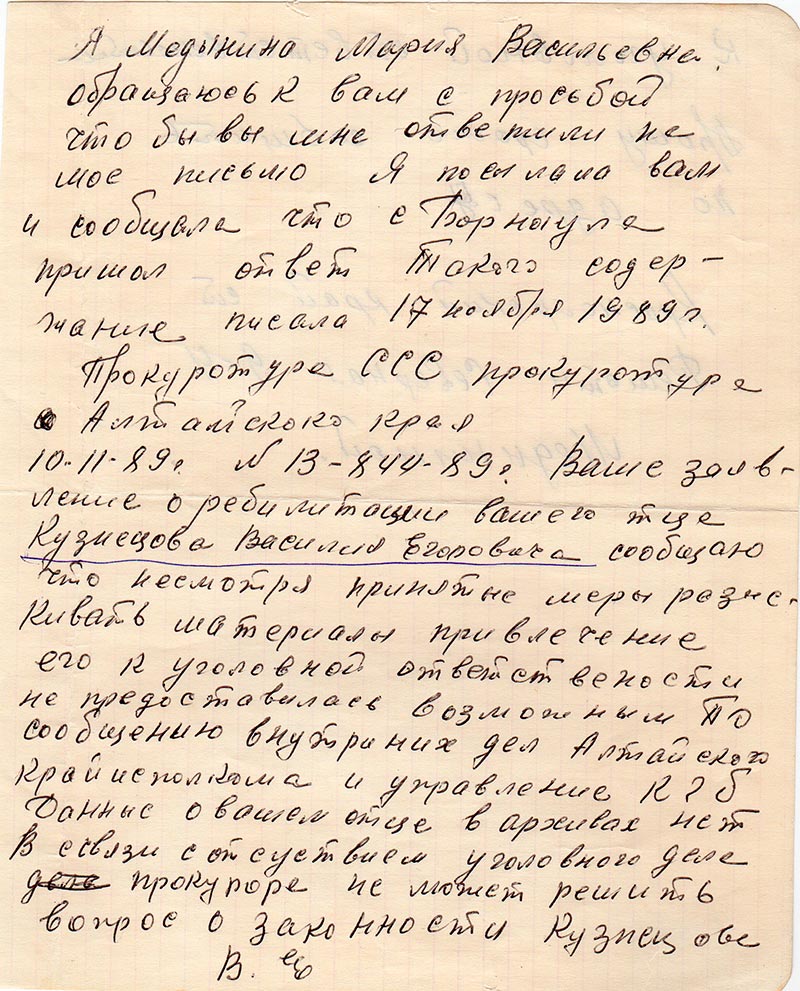 Я Медынина Мария Васильевна.
обращаюсь к вам с просьбой
что бы вы мне ответили на
мое письмо Я посылала вам
и сообщала что с Борнаула
пришол ответ Такого содер-
жание писала 17 ноября 1989г.
Прокуротура ССС прокуротура
Алтайскоко края
10-11-89г. N 13-844-89г. Ваше заяв-
ление о ребилитации вашего тца
Кузнецова Василия Егоровича сообщаю
что несмотря принятые меры разыс-
кивать материалы привлечение
его к уголовной ответствености
не предоставилась возможным По
сообщению внутриних дел Алтайского
крайисполкома и управление КГб
Данные о вашем отце в архивах нет
В связи с отсуствием уголовного дела
дела прокурора не может решить
вопрос о законности Кузнецова
В. Е